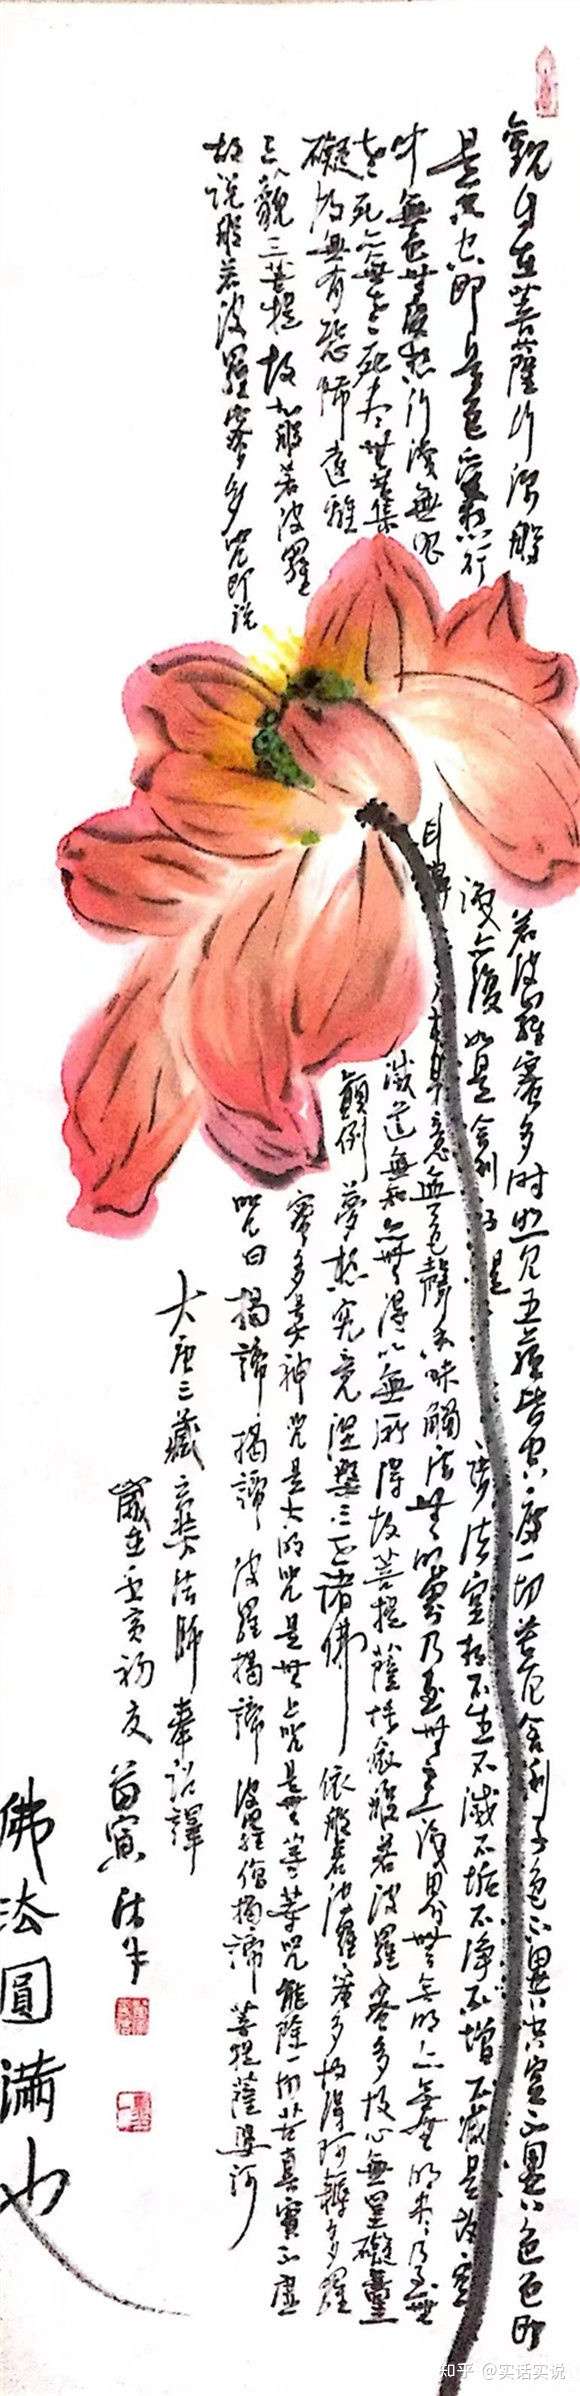 觀自在菩薩行深般若波羅蜜多時照見五蘊皆空度一切苦厄舍利子色不異空空不異色色即
是空空即是色受想行識亦復如是舍利子是諸法空相不生不滅不垢不淨不增不減是故空
中無色無受想行識無眼耳鼻舌身意無色聲香味觸法無眼界乃至無意識界無無明亦無無明盡乃至無
老死亦無老死盡無苦集滅道無智亦無得以無所得故菩提薩埵依般若波羅蜜多故心無罣礙無罣
礙故無有恐怖遠離顛倒夢想究竟涅槃三世諸佛依般若波羅蜜多故得阿耨多羅
三藐三菩提故知般若波羅蜜多是大神咒是大明咒是無上咒是無等等咒能除一切苦真實不虛
故說般若波羅蜜多咒即說咒曰揭諦揭諦波羅揭諦波羅僧揭諦菩提薩婆訶
大唐三藏玄奘法師奉詔譯
歲在壬寅初夏
佛法圓滿也
知乎 @实话实说